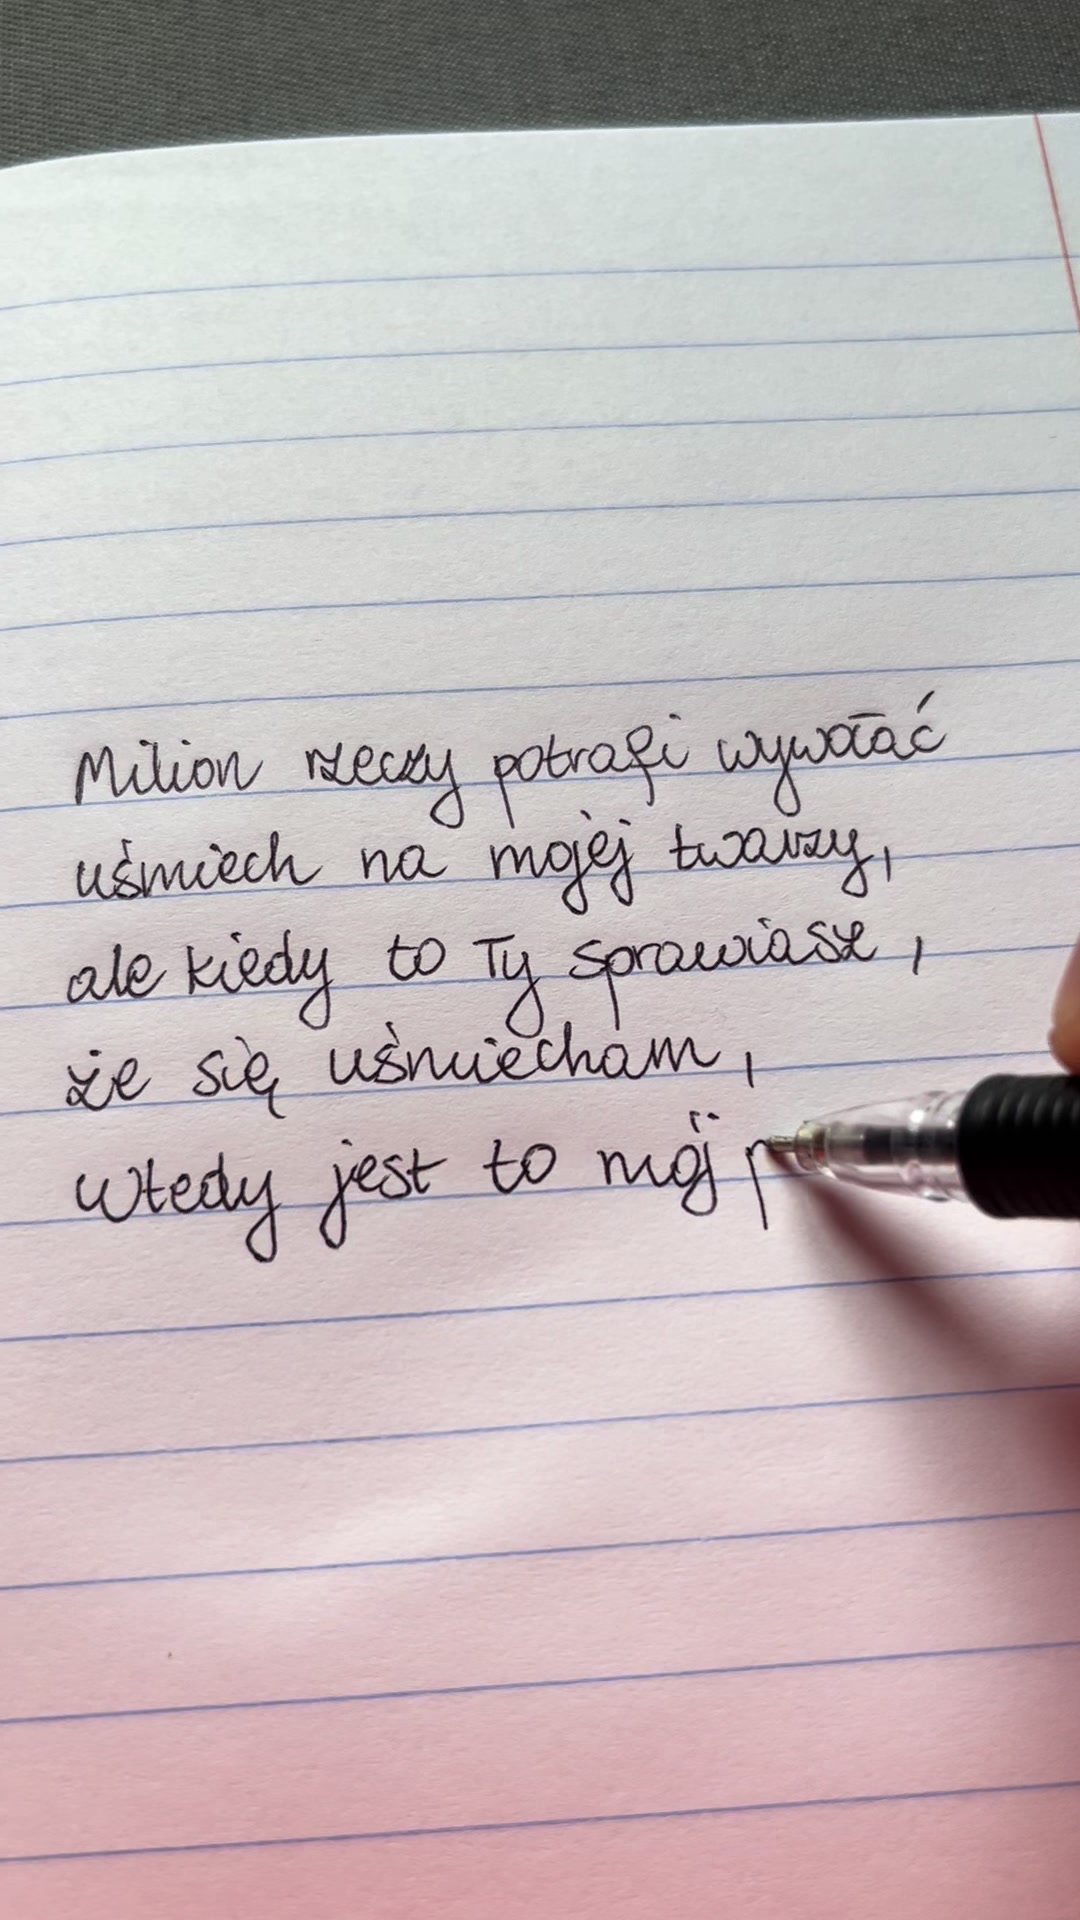 Milion rzeczy potrafi wywołać
uśmiech na mojej twarzy,
ale kiedy to Ty sprawiasz,
że się uśmiecham,
wtedy jest to mój p